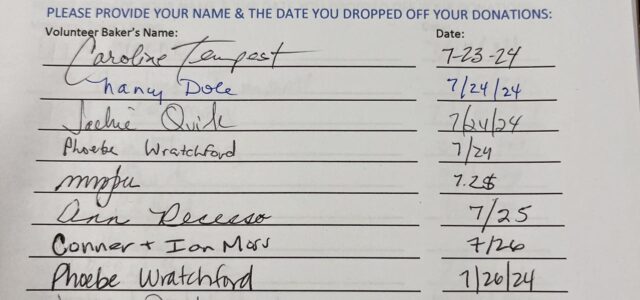 PLEASE PROVIDE YOUR NAME & THE DATE YOU DROPPED OFF YOUR DONATIONS:
Volunteer Baker's Name: Date:
Caroline Tempest 7-23-24
Nancy Dole 7/24/24
Jackie Quirk 7/24/24
Phoebe Wratchford 7/24
7.25
Ann Recesso 7/25
Conner + Ian Mors 7/26
Phoebe Wratchford 7/26/24